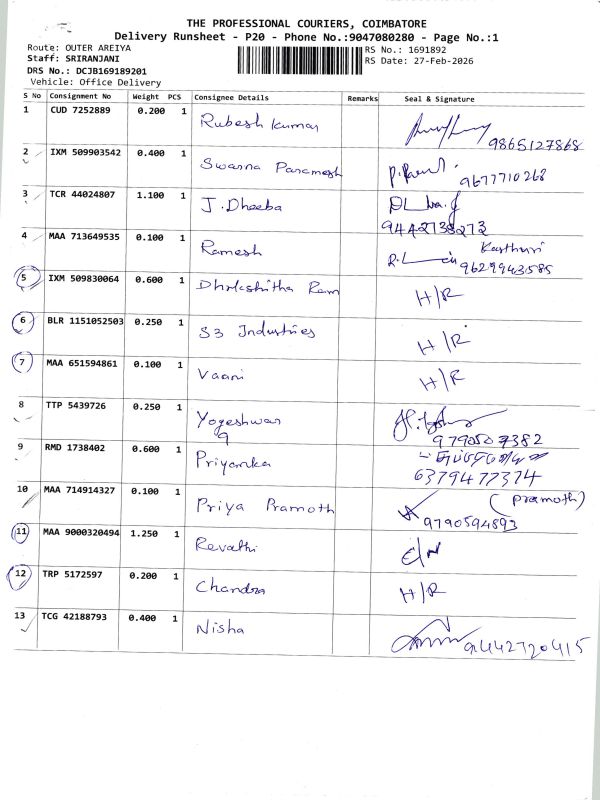 THE PROFESSIONAL COURIERS, COIMBATORE
Delivery Runsheet - P20 - Phone No.:9047080280 - Page No.:1
Route: OUTER AREIYA
Staff: SRIRANJANI
DRS No.: DCJB169189201
Vehicle: Office Delivery
RS No.: 1691892
RS Date: 27-Feb-2026
S No Consignment No Weight PCS Consignee Details Remarks Seal & Signature
1 CUD 7252889 0.200 1 Rubesh Kumar 9865127868
2 IXM 509903542 0.400 1 Swarna Paramesh 9677710268
3 TCR 44024807 1.100 1 J.Dheeba 9442738273
4 MAA 713649535 0.100 1 Ramesh Kasthuri 9629943585
5 IXM 509830064 0.600 1 Dhrkshitha Ram H/R
6 BLR 1151052503 0.250 1 S3 Industries H/R
7 MAA 651594861 0.100 1 Vaani H/R
8 TTP 5439726 0.250 1 Yogeshwar 9790507382
9 RMD 1738402 0.600 1 Priyanka 6379477374
10 MAA 714914327 0.100 1 Priya Pramoth (Pramoth) 9790594893
11 MAA 9000320494 1.250 1 Revathi
12 TRP 5172597 0.200 1 Chandra H/R
13 TCG 42188793 0.400 1 Nisha 9442720415